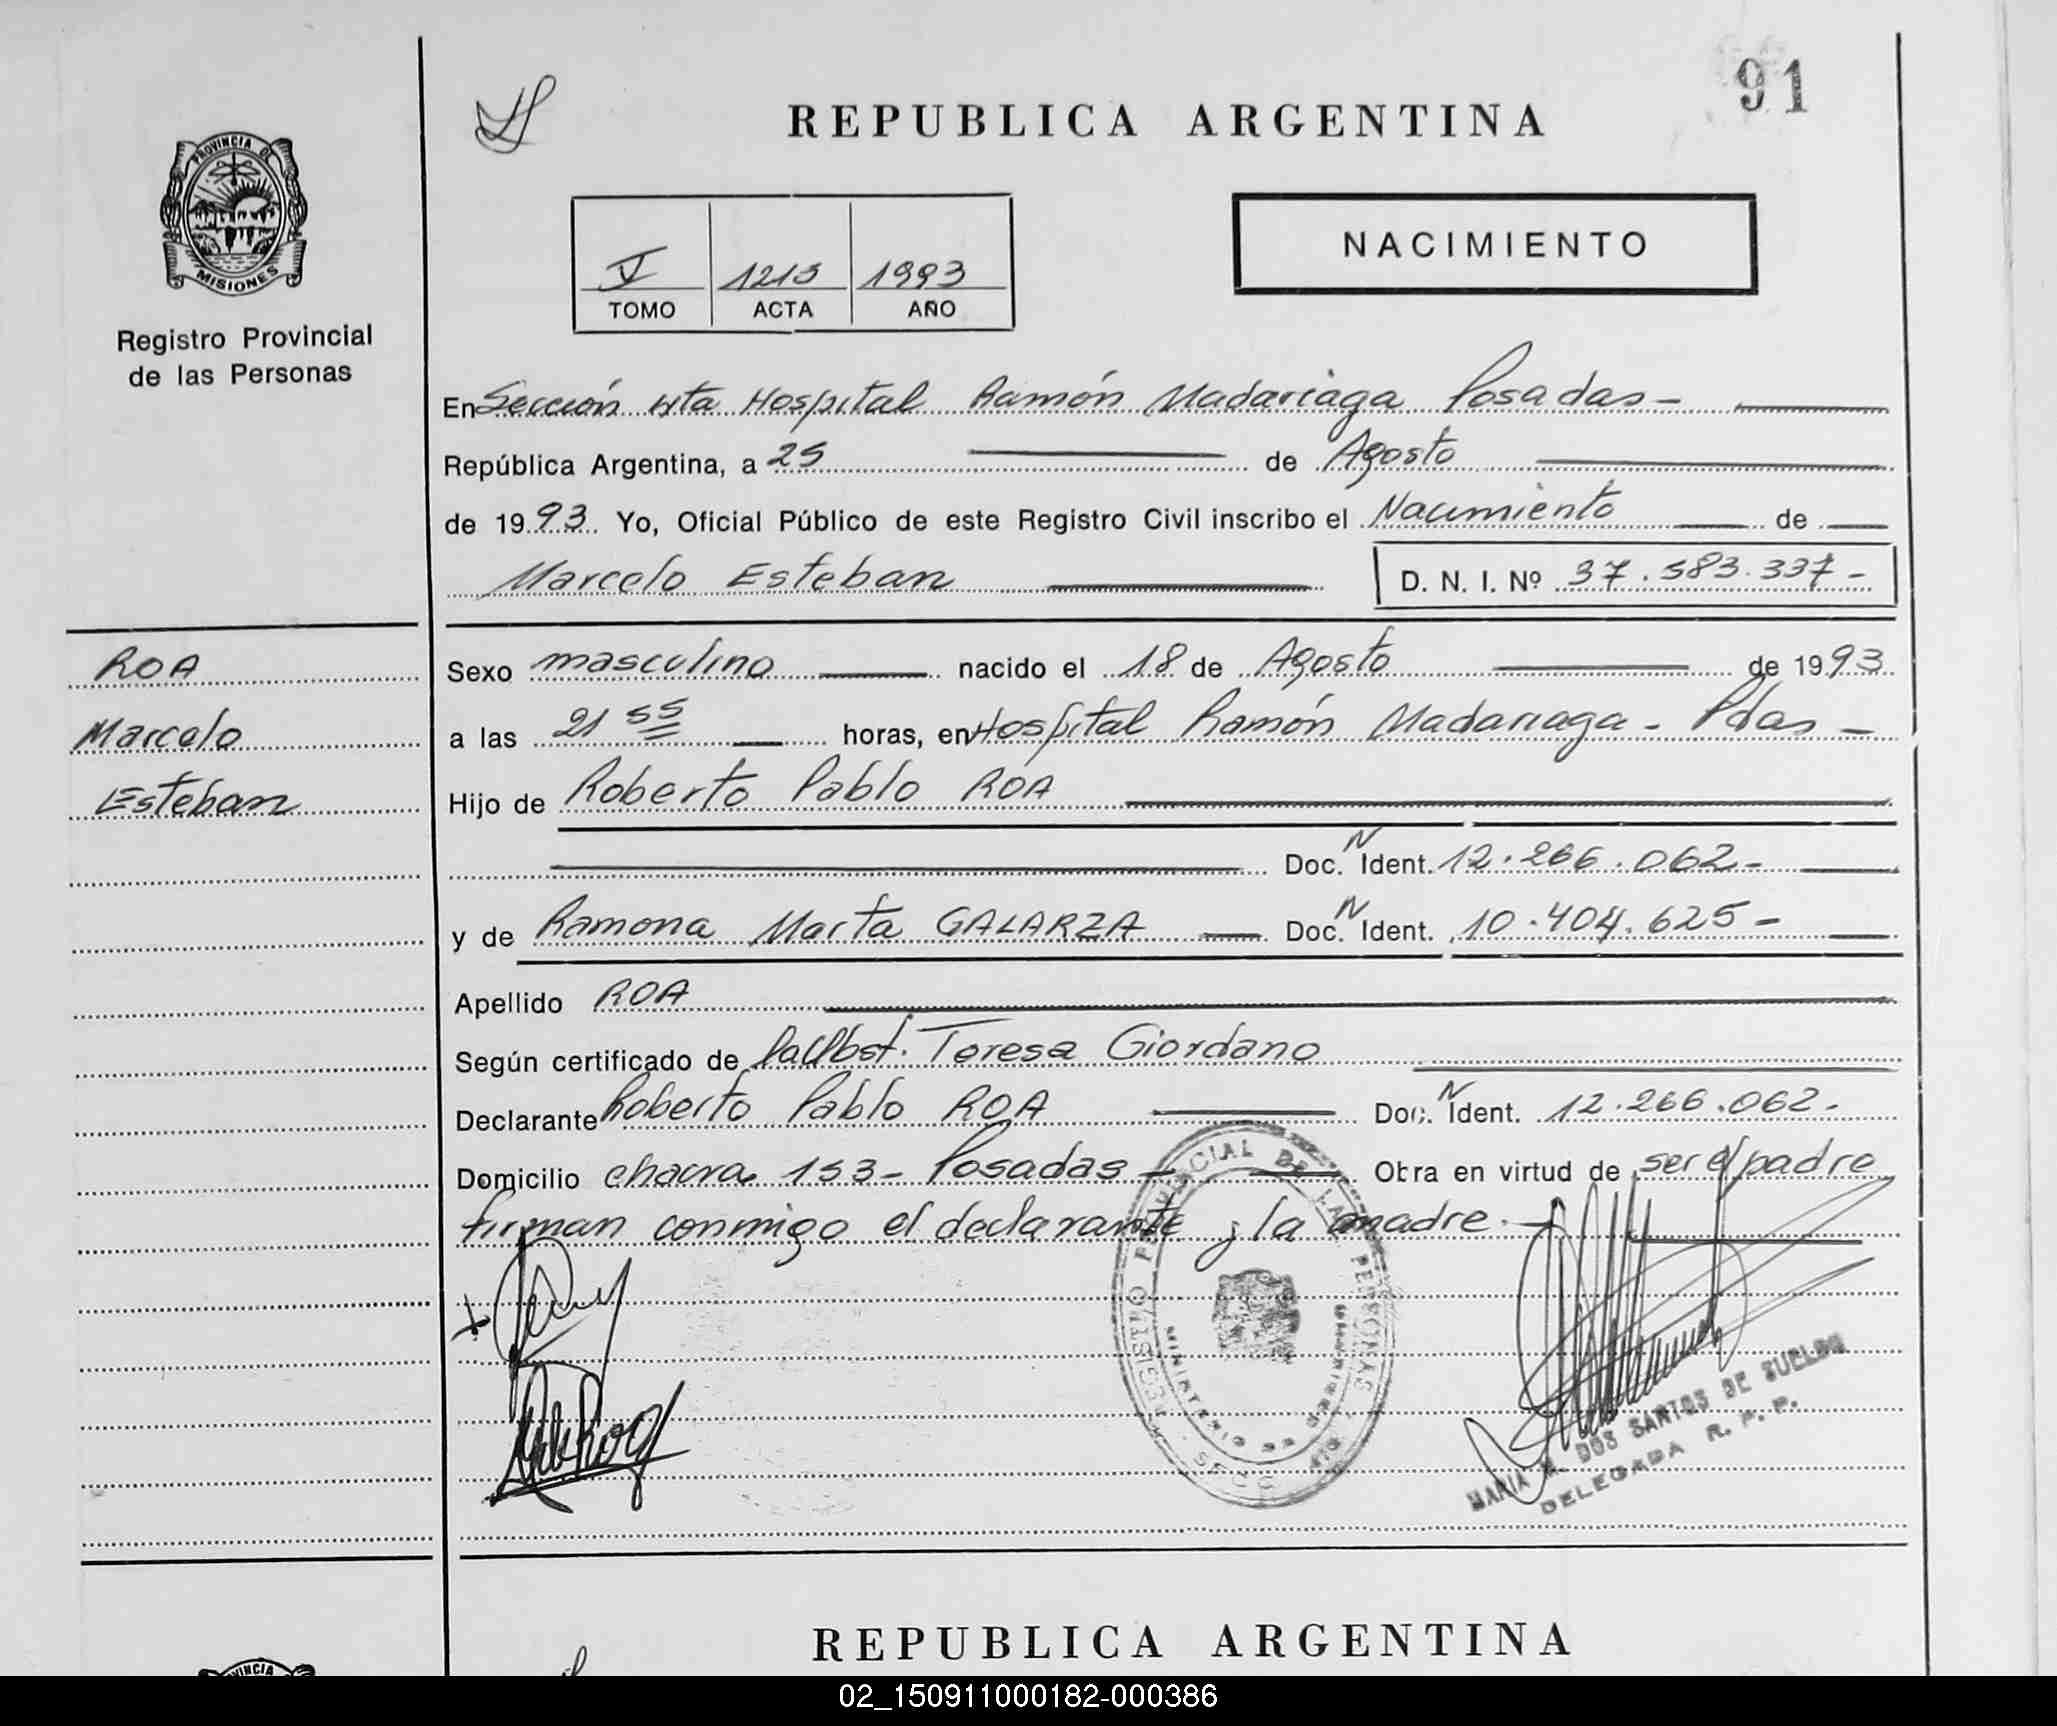 91
REPUBLICA ARGENTINA
PROVINCIA DE
MISIONES
Registro Provincial
de las Personas
V 1215 1993
TOMO ACTA AÑO
NACIMIENTO
En Sección 4ta Hospital Ramón Madariaga Posadas-
República Argentina, a 25 de Agosto
de 1993. Yo, Oficial Público de este Registro Civil inscribo el Nacimiento de
Marcelo Esteban D. N. I. Nº 37.583.337-
ROA
Marcelo
Esteban
Sexo masculino nacido el 18 de Agosto de 1993
a las 21 55 horas, en Hospital Ramón Madariaga - Pdas -
Hijo de Roberto Pablo ROA
Doc. N Ident. 12.266.062-
y de Ramona Marta GALARZA Doc. N Ident. 10.404.625-
Apellido ROA
Según certificado de Teresa Giordano
Declarante Roberto Pablo ROA Doc. N Ident. 12.266.062-
Domicilio chacra 153- Posadas - Obra en virtud de ser el padre
firman conmigo el declarante y la madre.-
REGISTRO PROVINCIAL DE LAS PERSONAS
MINISTERIO DE
MARIA DOS SANTOS DE SUELDO
DELEGADA R. P. P.
REPUBLICA ARGENTINA
VINCIA
02_150911000182-000386